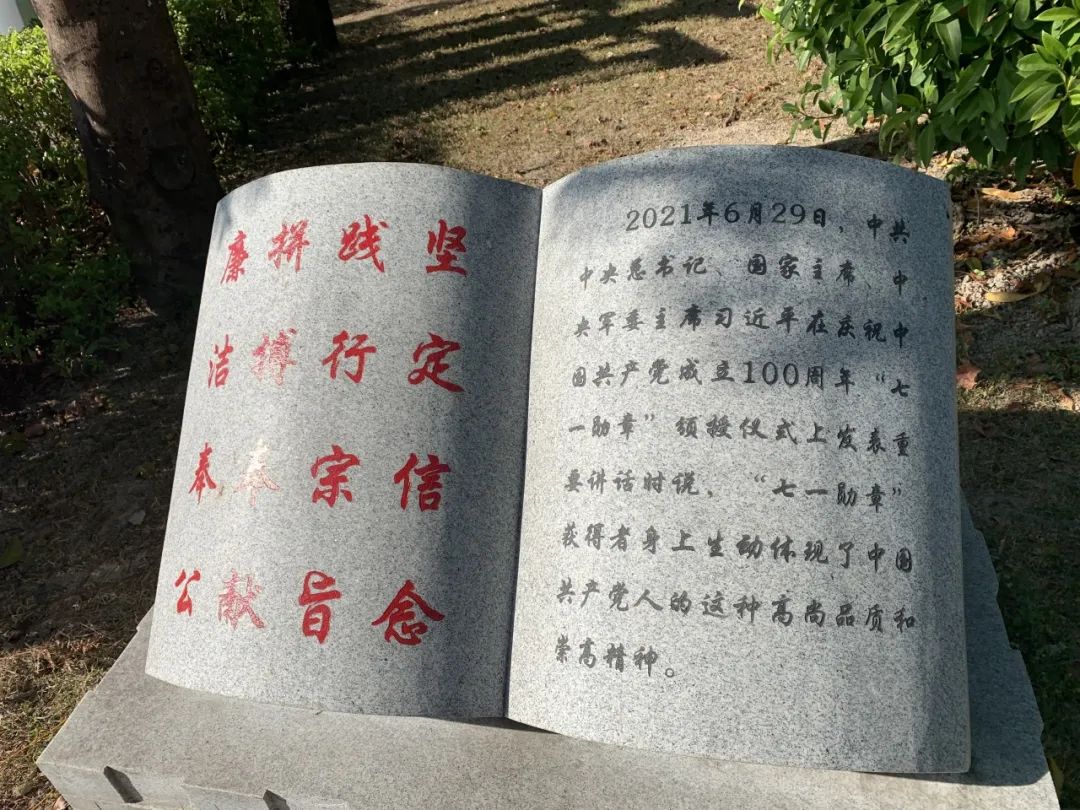 坚定信念
践行宗旨
拼搏奉献
廉洁奉公
2021年6月29日，中共
中央总书记、国家主席、中
央军委主席习近平在庆祝中
国共产党成立100周年“七
一勋章”颁授仪式上发表重
要讲话时说，“七一勋章”
获得者身上生动体现了中国
共产党人的这种高尚品质和
崇高精神。